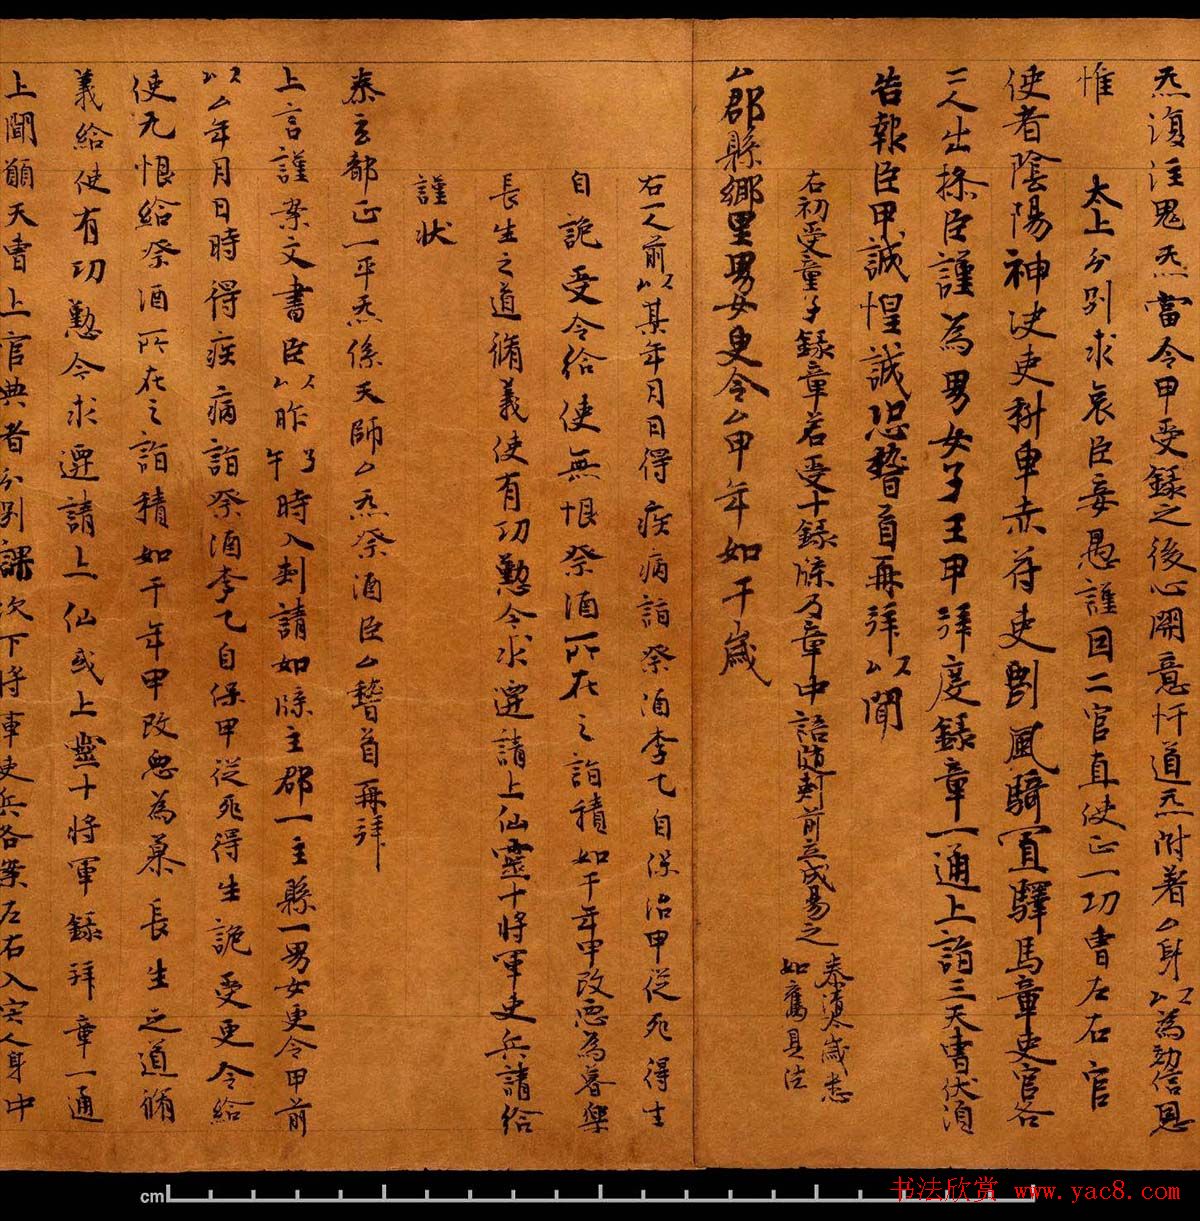 炁復注鬼炁當令甲受錄之後心開意忓道炁附著厶身以為効信恩
惟
太上分別求哀臣妾愚謹因二官直使正一功曹左右官
使者陰陽神决吏科車赤符吏剛風騎置驛馬章吏官各
二人出操臣謹為男女子王甲拜度錄章一通上詣三天曹伏須
告報臣甲誠惶誠恐稽首再拜以聞
右初受童子錄章若受十錄牒及章中語隨剌前立成易之
泰清厶歲悉
如舊具法
厶郡縣鄉里男女吏令厶甲年如干歲
右一人前以某年月日得疾病詣祭酒李乙自保治甲從死得生
自詭受令給使無恨祭酒所在之詣積如干年甲改惡為善樂
長生之道脩義使有功懃令求遷請上仙靈十將軍吏兵請給
謹狀
泰玄都正一平炁係天師厶炁祭酒臣厶稽首再拜
上言謹案文書臣以昨午子時入剌請如牒主郡一主縣一男女更令甲前
以厶年月日時得疾病詣祭酒李乙自保甲從死得生詭受更令給
使无恨給祭酒所在之詣積如干年甲改忽為慕長生之道脩
義給使有功懃令求遷請上仙或上靈十將軍錄拜章一通
上聞願天曹上官典者分別課次下將軍吏兵各案左右入定人身中
cm
书法欣赏 www.yac8.com